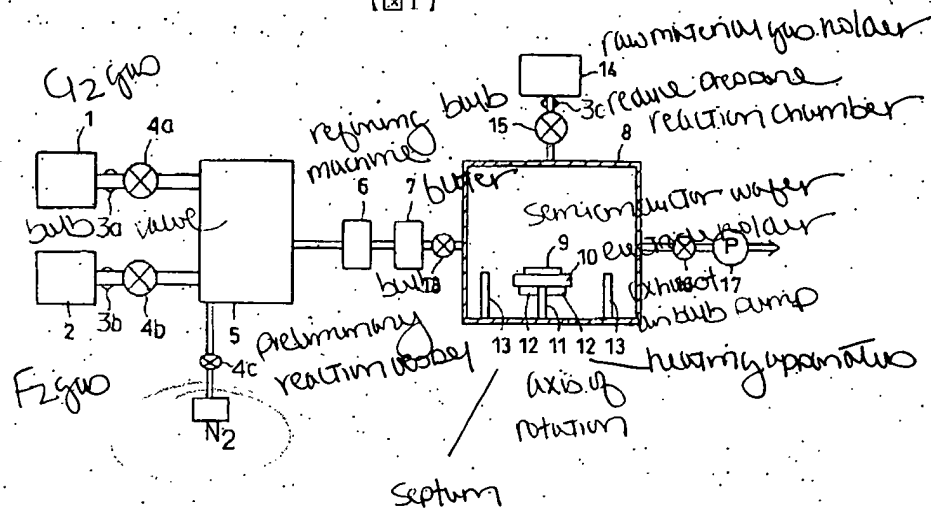 【図1】
Cl2 gas
1
4a
bulb 3a valve
2
3b
4b
F2 gas
5
4c
N2
preliminary
reaction vessel
refining bulb
machine
6
7
buffer
bulb
18
raw material gas holder
14
3c reduce pressure
reaction chamber
15
8
semiconductor wafer
9
10
holder
exhaust
16
17
P
pump
13
12
11
12
13
heating apparatus
axis of
rotation
septum